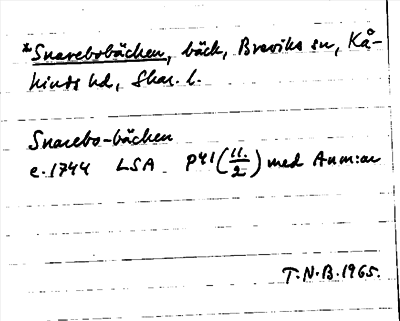 *Snarebobäcken, bäck, Breviks sn, Kå-
kinds hd, Skar. l.
Snarebo-bäcken
e. 1744 LSA P41 (11./2) med Anm:ar
T.N.B. 1965.